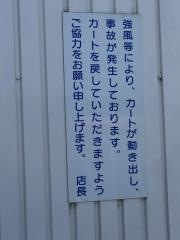 強風等により、カートが動き出し、
事故が発生しております。
カートを戻していただきますよう
ご協力をお願い申し上げます。
店長